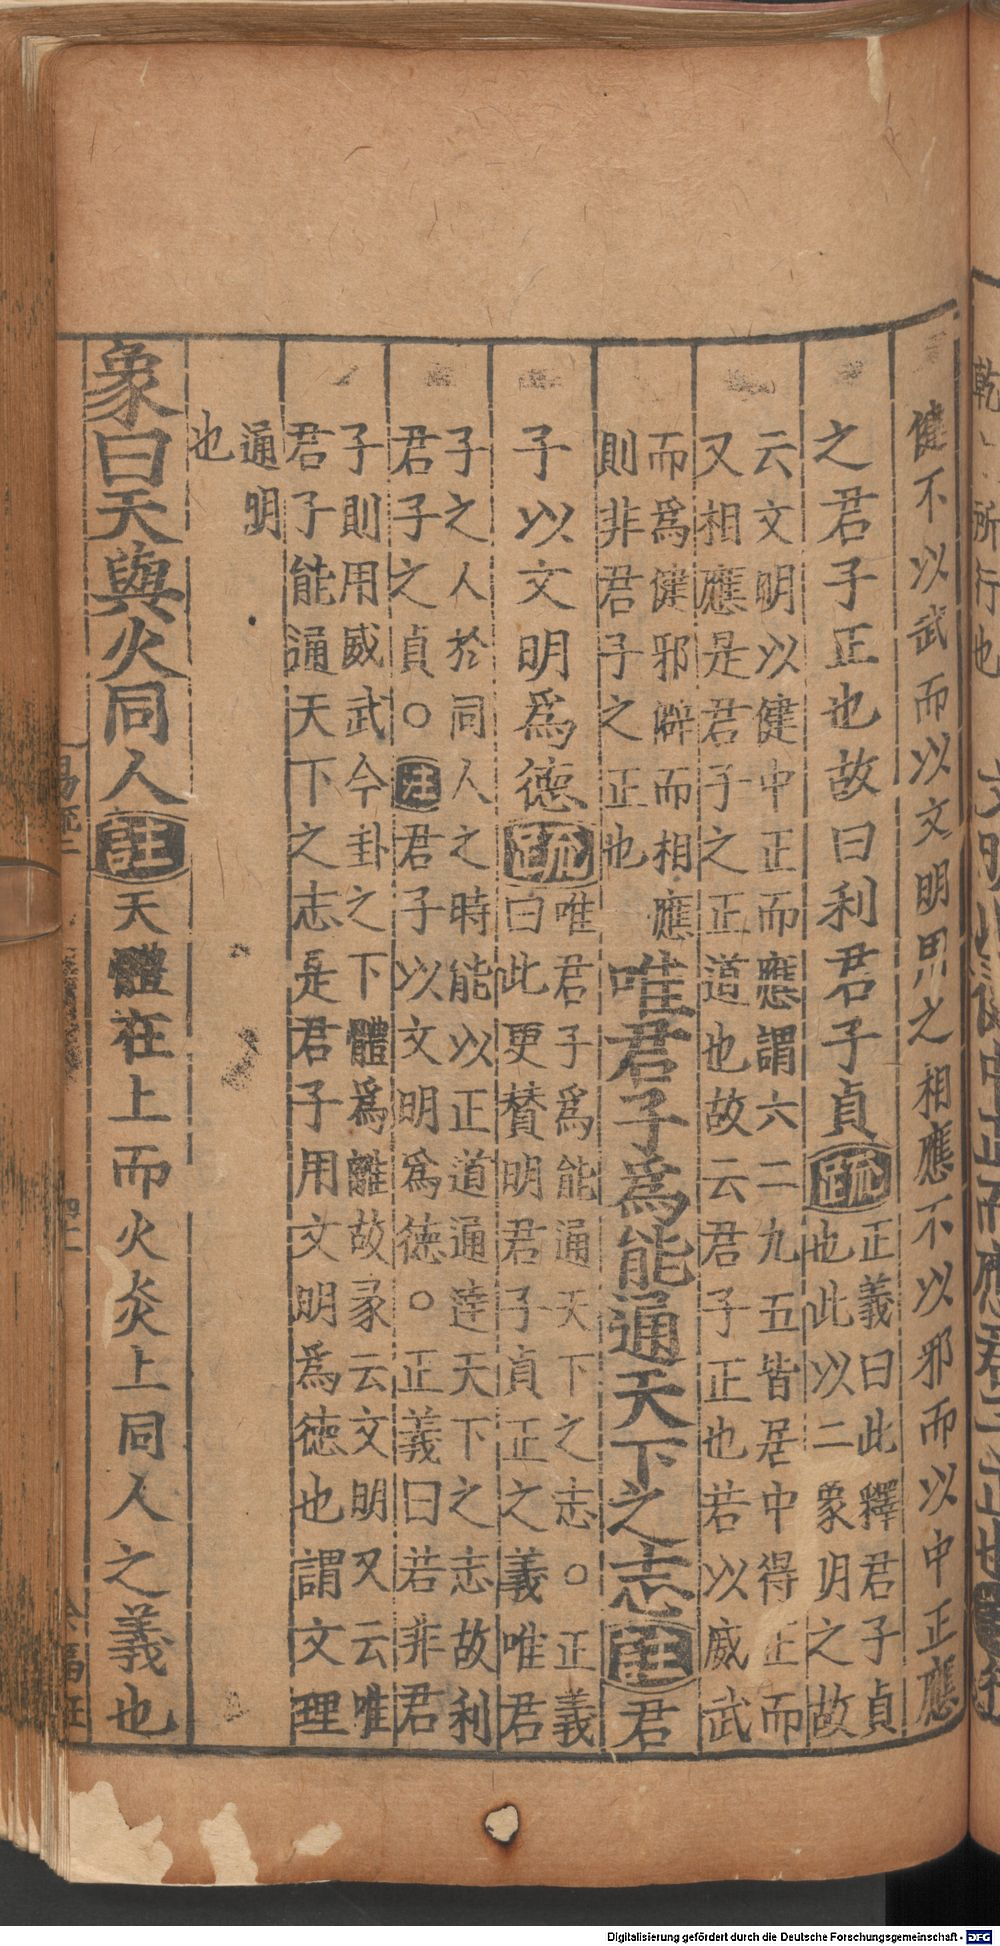 健不以武而以文明用之相應不以邪而以中正應
之君子正也故曰利君子貞疏正義曰此釋君子貞
也此以二象明之故
云文明以健中正而應謂六二九五皆居中得正而
又相應是君子之正道也故云君子正也若以威武
而爲健邪僻而相應
則非君子之正也
唯君子爲能通天下之志註君
子以文明爲德疏唯君子爲能通天下之志○正義
曰此更賛明君子貞正之義唯君
子之人於同人之時能以正道通達天下之志故利
君子之貞○注君子以文明爲德○正義曰若非君
子則用威武今卦之下體爲離故彖云文明又云唯
君子能通天下之志是君子用文明爲德也謂文理
通明
也
象曰天與火同人註天體在上而火炎上同人之義也
Digitalisierung gefördert durch die Deutsche Forschungsgemeinschaft - DFG